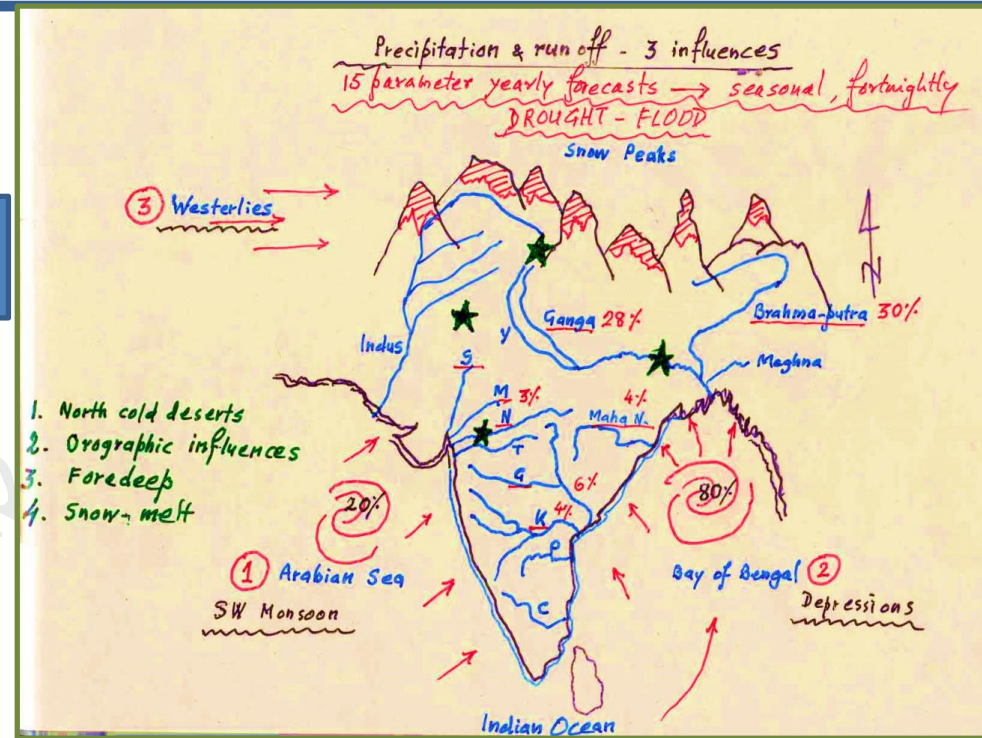 Precipitation & run off - 3 influences
15 parameter yearly forecasts → seasonal, fortnightly
DROUGHT - FLOOD
Snow Peaks
3 Westerlies
Indus
Y
Ganga 28%
Brahma-putra 30%
Meghna
S
M 3%
N
4%
Maha N.
T
G
6%
K 4%
P
C
1. North cold deserts
2. Orographic influences
3. Foredeep
4. Snow-melt
20%
80%
1 Arabian Sea
SW Monsoon
Bay of Bengal 2
Depressions
Indian Ocean
N